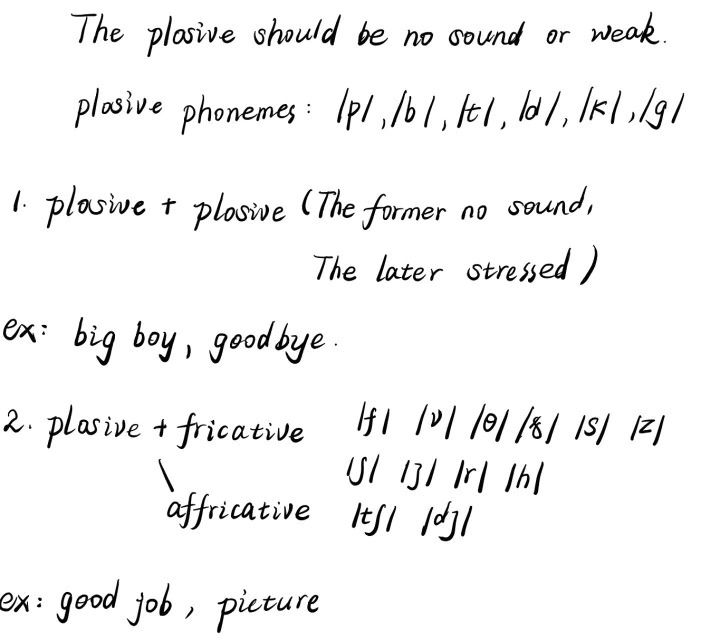 The plosive should be no sound or weak.
plosive phonemes: /p/, /b/, /t/, /d/, /k/, /g/
1. plosive + plosive (The former no sound,
The later stressed)
ex: big boy, goodbye.
2. plosive + fricative /f/ /v/ /θ/ /ð/ /s/ /z/
/ʃ/ /ʒ/ /r/ /h/
\ affricative /tʃ/ /dʒ/
ex: good job, picture